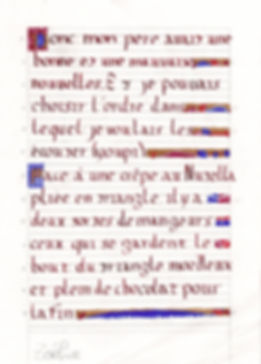 Donc mon père avait une
bonne et une mauvaise
nouvelles. Et je pouvais
choisir l'ordre dans
lequel je voulais les
écouter (soupir)
Face à une crêpe au Nutella
pliée en triangle il y a
deux sortes de mangeurs
ceux qui se gardent le
bout du triangle moelleux
et plein de chocolat pour
la fin